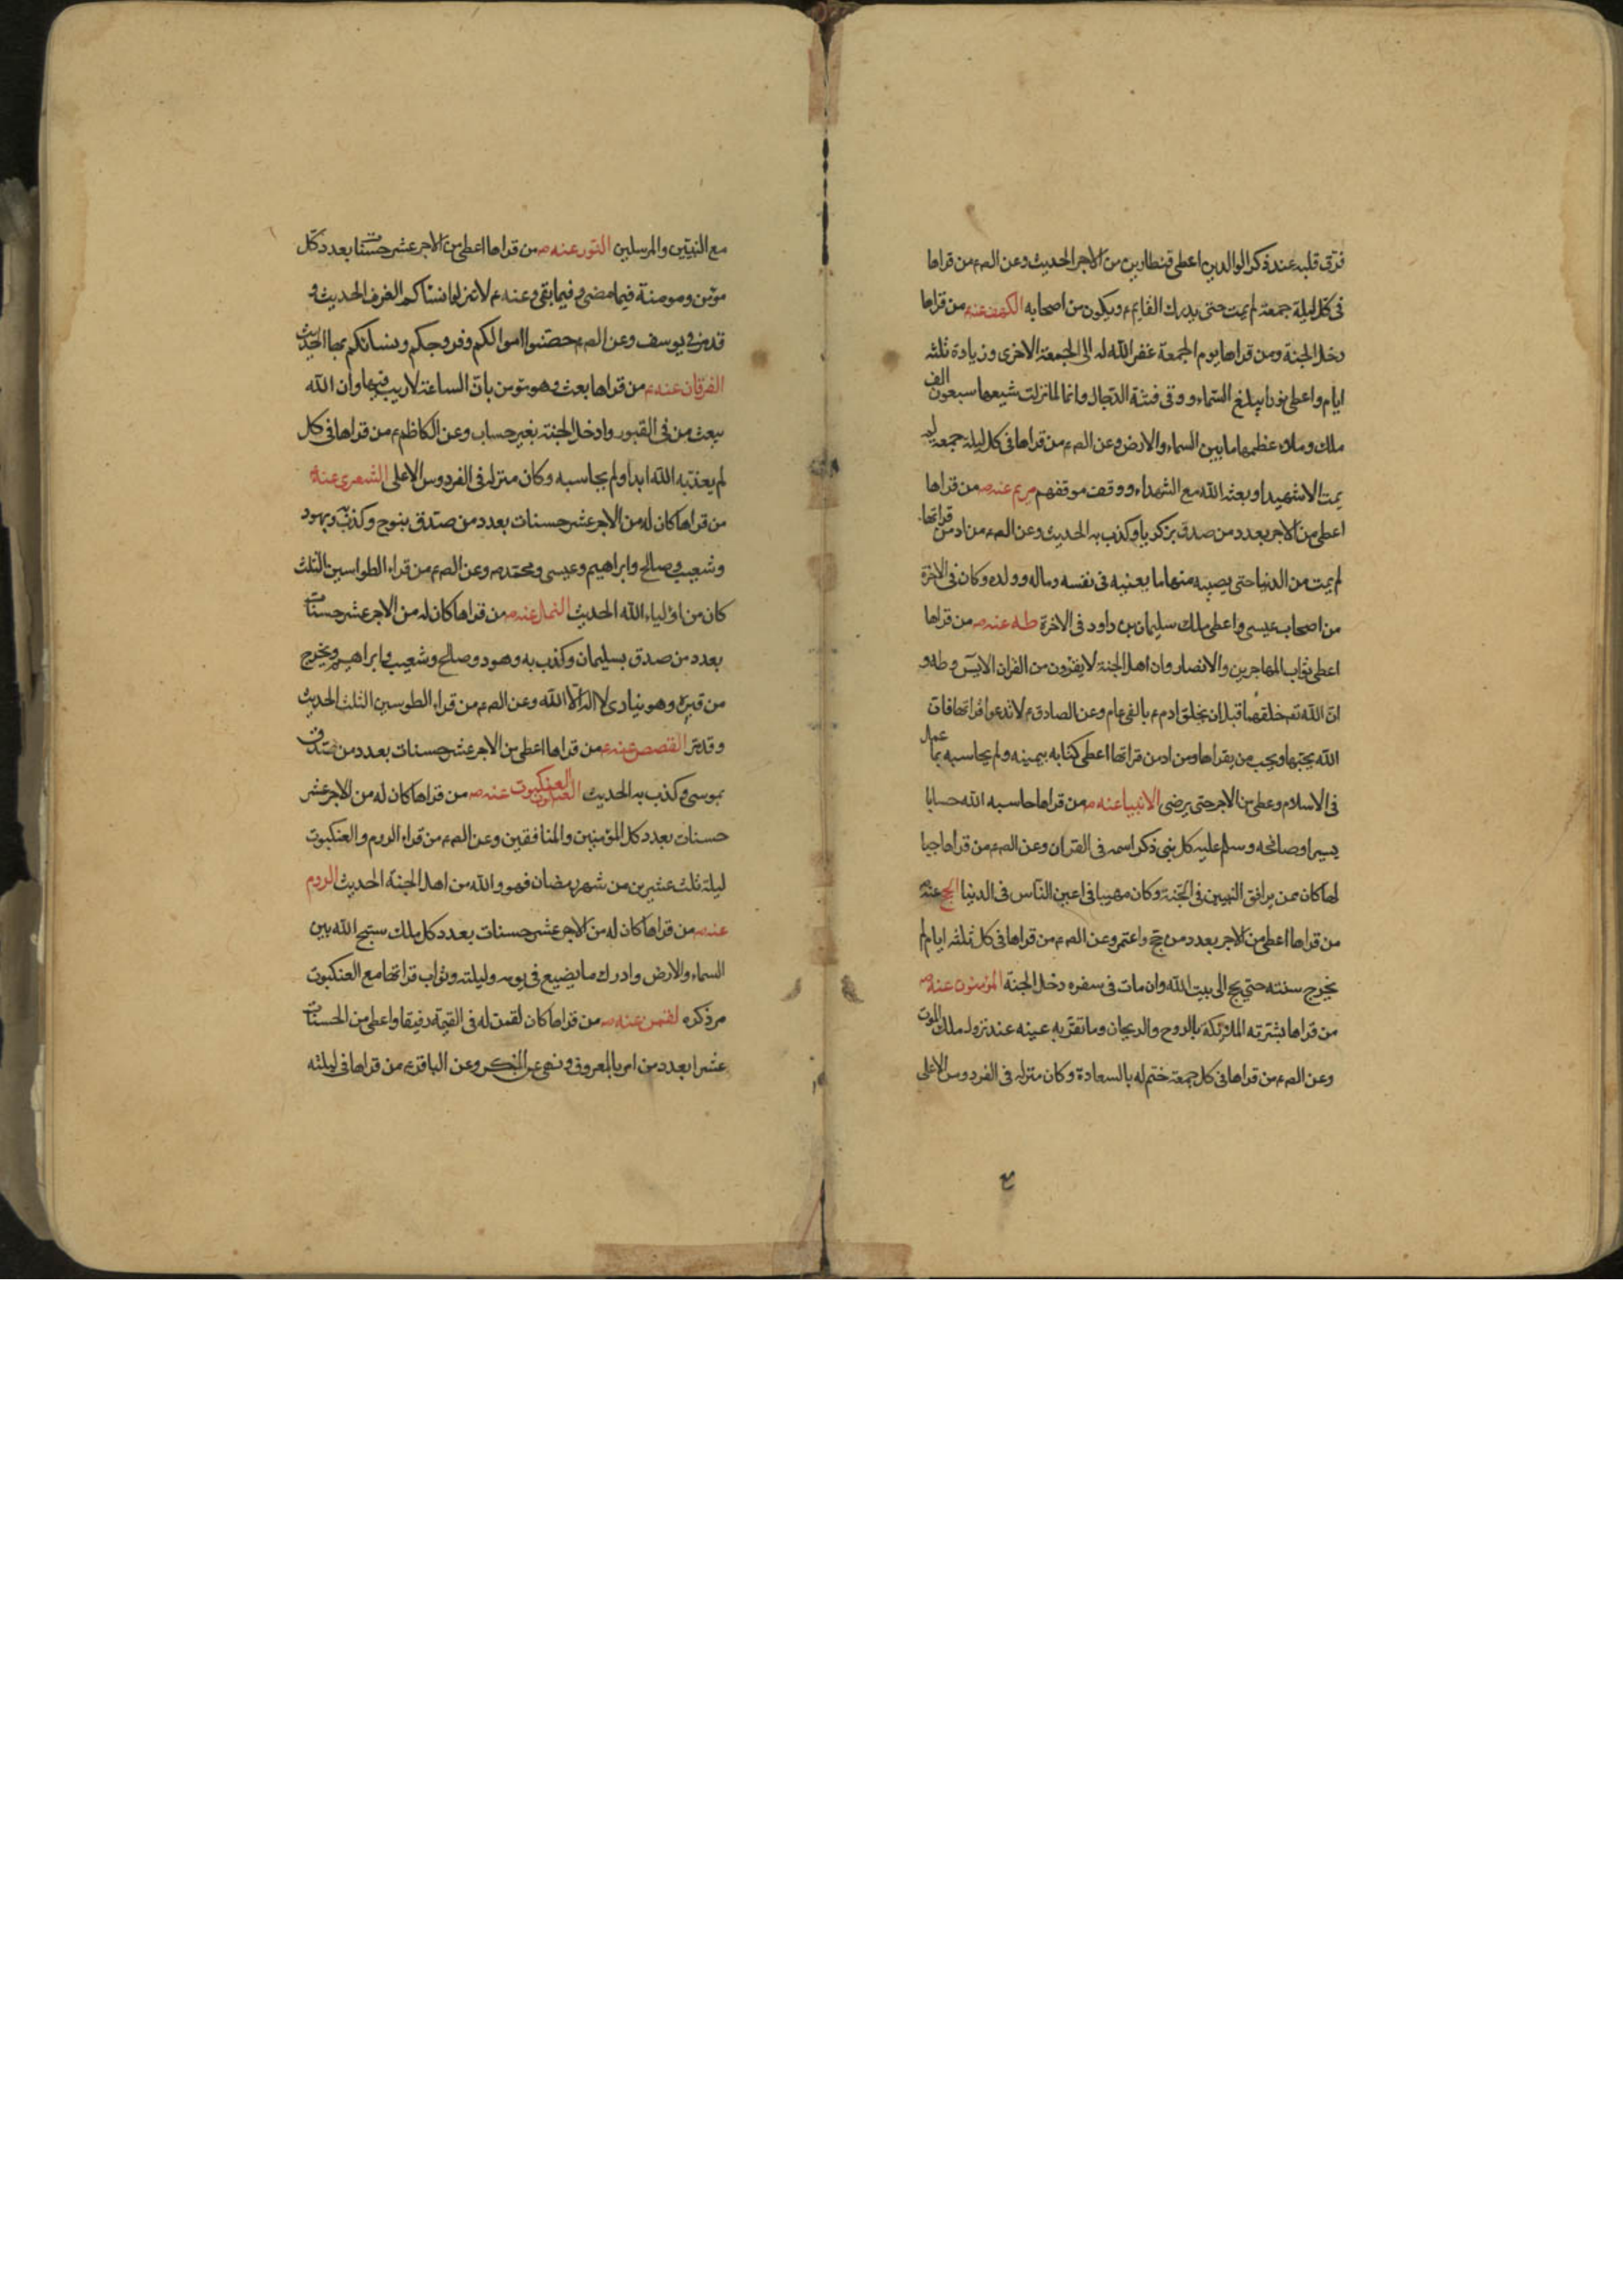 فرق قلبه عند ذكر الوالدين اعطى قنطارين من الاجر الحديث وعن الصم من قراها
فى كل ليلة جمعة لم يمت حتى يدرك القايم م ويكون من اصحابه الكهف عنه م من قراها
دخل الجنة ومن قراها يوم الجمعة غفر الله له الى الجمعة الاخرى وزيادة ثلثه
ايام واعطى نورا يبلغ السماء ووقى فتنة الدجال وانها لما نزلت شيعها سبعون الف
ملك وملاء عظمها ما بين السماء والارض وعن الصم من قراها فى كل ليلة جمعة لم
يمت الا شهيدا وبعثه الله مع الشهداء ووقف موقفهم مريم عنه ص من قراها
اعطى من الاجر بعدد من صدق بزكريا وكذب به الحديث وعن الصم من ادمن قراتها
لم يمت من الدنيا حتى يصيبه منها ما يعنيه فى نفسه وماله وولده وكان فى الاخرة
من اصحاب عيسى واعطى ملك سليمان بن داود فى الاخرة طه عنه ص من قراها
اعطى ثواب المهاجرين والانصار وان اهل الجنة لا يقرون من القران الا يس وطه و
ان الله تعـ خلقهما قبل ان يخلق ادم م بالفى عام وعن الصادق م لا تدعوا قراتها فان
الله يحبها ويحب من يقراها ومن ادمن قراتها اعطى كتابه بيمينه ولم يحاسبه بما عمل
فى الاسلام وعطى من الاجر حتى يرضى الانبيا عنه ص من قراها حاسبه الله حسابا
يسيرا وصافحه وسلم عليه كل نبى ذكر اسمه فى القران وعن الصم من قراها حبا
لها كان ممن يرافق النبيين فى الجنة وكان مهيبا فى اعين الناس فى الدنيا الحج عنه
من قراها اعطى من الاجر بعدد من حج واعتمر وعن الصم من قراها فى كل ثلثه ايام لم
يخرج سنته حتى يحج الى بيت الله وان مات فى سفره دخل الجنة المؤمنون عنه ص
من قراها بشرته الملائكة بالروح والريحان وما تقر به عينه عند نزول ملك الموت
وعن الصم من قراها فى كل جمعة ختم له بالسعادة وكان منزله فى الفردوس الاعلى
مع النبيين والمرسلين النور عنه ص من قراها اعطى من الاجر عشر حسنات بعدد كل
مؤمن ومومنة فيما مضى وفيما بقى وعنه م لا تنزلوا نساكم الغرف الحديث و
قد مر فى يوسف وعن الصم حصنوا اموالكم وفروجكم ونسائكم بها الحديث
الفرقان عنه م من قراها بعث وهو يؤمن بان الساعة لا ريب فيها وان الله
يبعث من فى القبور وادخل الجنة بغير حساب وعن الكاظم م من قراها فى كل
لم يعذبه الله ابدا ولم يحاسبه وكان منزله فى الفردوس الاعلى الشعرى عنه
من قراها كان له من الاجر عشر حسنات بعدد من صدق بنوح وكذب به وبهود
وشعيب وصالح وابراهيم وعيسى ومحمد ص وعن الصم من قراء الطواسين الثلث
كان من اولياء الله الحديث النمل عنه ص من قراها كان له من الاجر عشر حسنات
بعدد من صدق بسليمان وكذب به وهود وصالح وشعيب وابراهيم ويخرج
من قبره وهو ينادى لا اله الا الله وعن الصم من قراء الطوسين الثلث الحديث
وقد مر القصص عنه م من قراها اعطى من الاجر عشر حسنات بعدد من صدق
بموسى وكذب به الحديث العنكبوت عنه ص من قراها كان له من الاجر عشر
حسنات بعدد كل المؤمنين والمنافقين وعن الصم من قراء الروم والعنكبوت
ليلة ثلث عشرين من شهر رمضان فهو والله من اهل الجنة الحديث الروم
عنه ص من قراها كان له من الاجر عشر حسنات بعدد كل ملك سبح الله بين
السماء والارض وادرك ما يضيع فى يومه وليلته وثواب قراتها مع العنكبوت
مر ذكره لقمن عنه ص من قراها كان لقمن له فى القيمة رفيقا واعطى من الحسنات
عشرا بعدد من امر بالمعروف ونهى عن المنكر وعن الباقر م من قراها فى ليلته